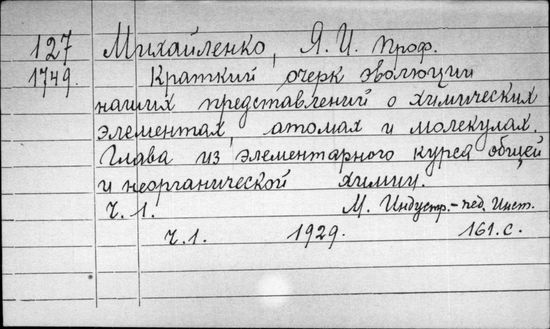 127 Михайленко, Я. И. проф.
1749. Краткий очерк эволюции
наших представлений о химических
элементах, атомах и молекулах.
Глава из элементарного курса общей
и неорганической химии.
Ч. 1. М. Индустр.-пед. Инст.
ч. 1. 1929. 161. с.